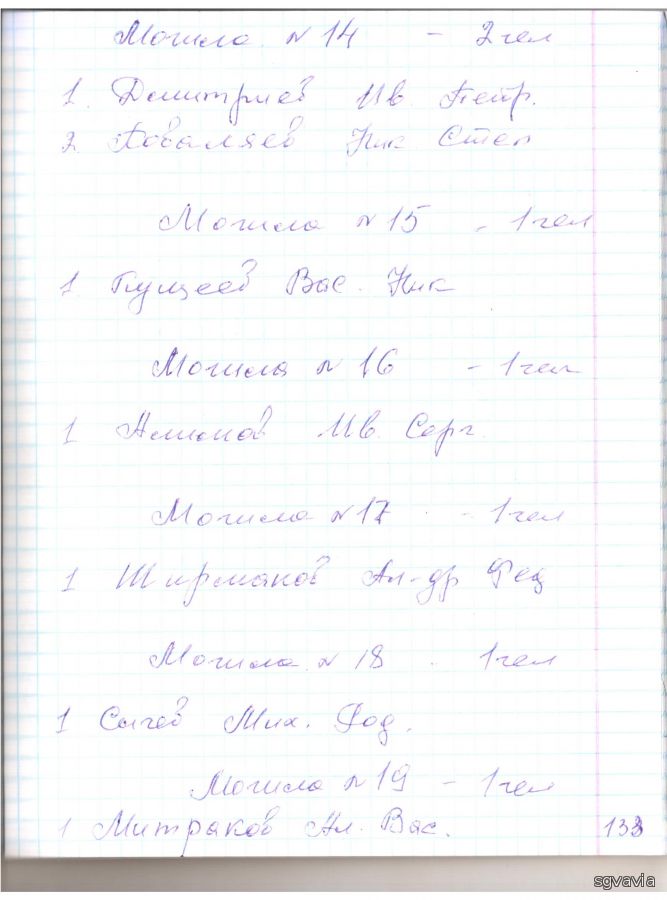 Могила № 14 - 2 чел
1. Дмитриев Ив. Петр.
2. Поваляев Ник. Степ
Могила № 15 - 1 чел
1. Гущеев Вас. Ник
Могила № 16 - 1 чел
1 Ив. Серг.
Могила № 17 - 1 чел
1 Ширманов Ал-др Фед
Могила № 18 - 1 чел
1 Сычев Мих. Фод.
Могила № 19 - 1 чел
1 Митраков Ал. Вас.
133
sgvavia